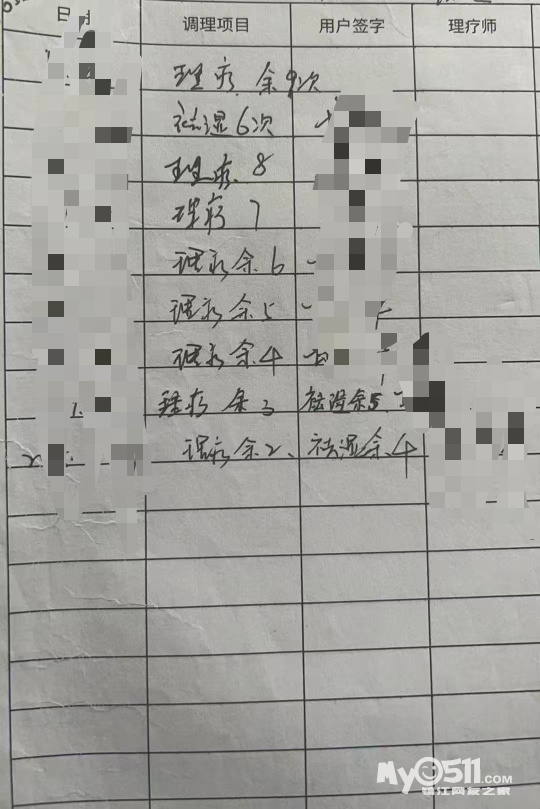 日 调理项目 用户签字 理疗师
理疗 余9次
祛湿6次
理疗 8
理疗 7
理疗余6
理疗余5
理疗余4
理疗 余3 祛湿余5
理疗余2、祛湿余4
My0511.COM
镇江网友之家